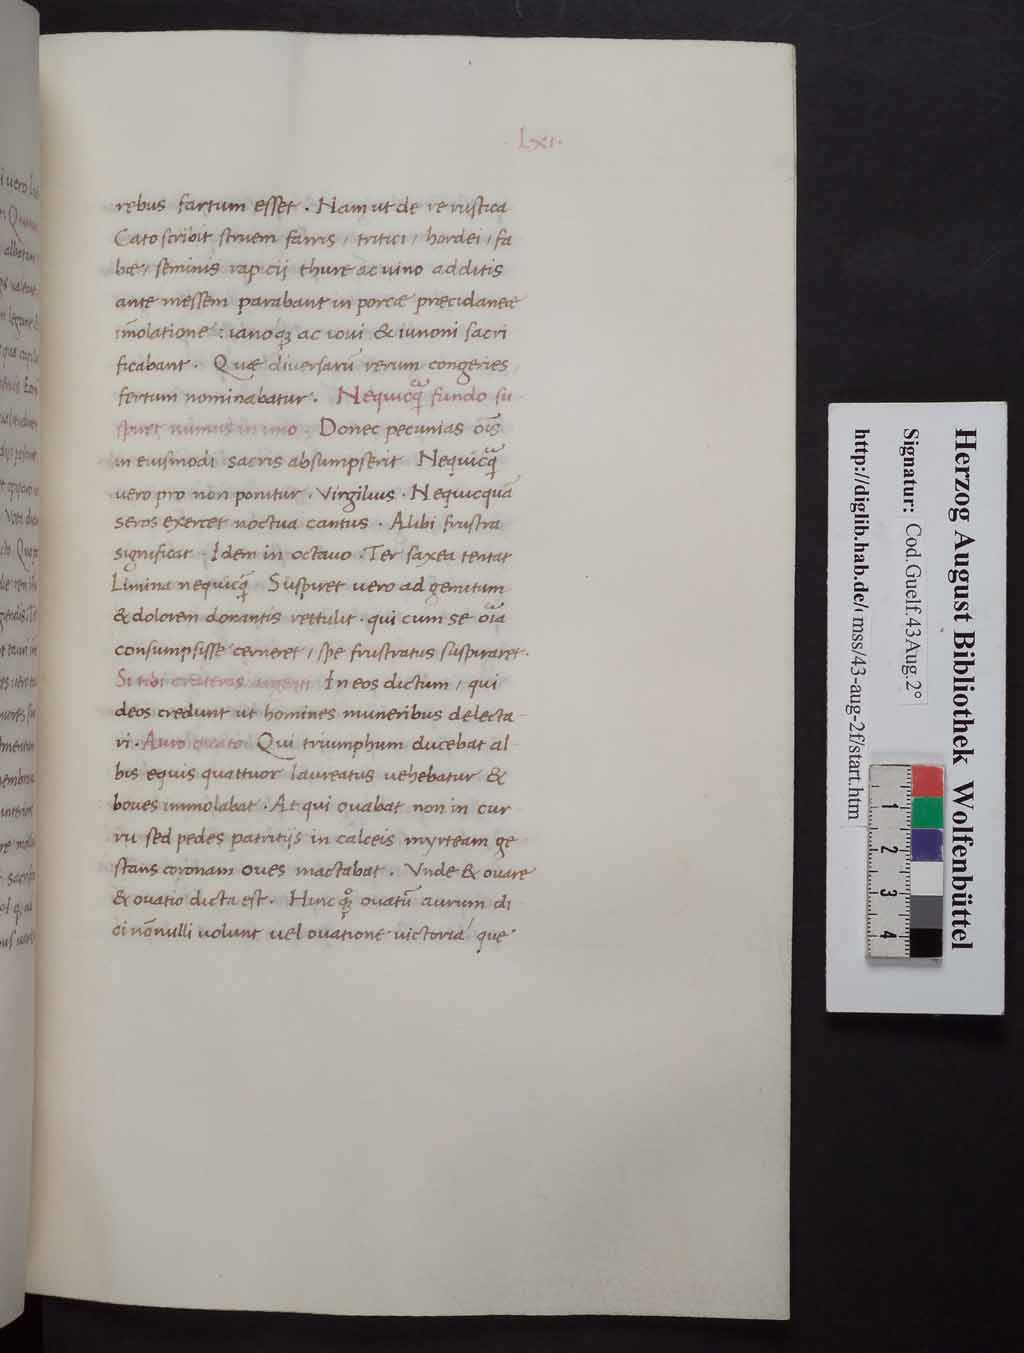 · Lxi ·
rebus fartum esset . Nam ut de re rustica
Cato scribit struem farris / tritici / hordei / fa
bæ / seminis rapicij thure ac uino additis
ante messem parabant in porcæ præcidaneæ
īmolatione : ianoqȝ ac ioui & iunoni sacri
ficabant . Quæ diuersarū rerum congeries
fertum nominabatur . Nequicq̄ fundo su
spiret numus in imo . Donec pecunias oīs
in eiusmodi sacris absumpserit Nequicq̄
uero pro non ponitur . Virgilius . Nequicquā
seros exercet noctua cantus . Alibi frustra
significat . Idem in octauo . Ter saxea tentat
Limina nequicq̄ . Suspiret uero ad gemitum
& dolorem donantis rettulit . qui cum se oīa
consumpsisse cerneret / spe frustratus suspiraret .
Si tibi creterras argenti In eos dictum / qui
deos credunt ut homines muneribus delecta
ri . Auro ouato Qui triumphum ducebat al
bis equis quattuor laureatus uehebatur &
boues immolabat . At qui ouabat non in cur
ru sed pedes patritijs in calceis myrteam ge
stans coronam oues mactabat . Vnde & ouare
& ouatio dicta est . Hinc qȝ ouatū aurum di
ci nōnulli uolunt uel ouatione uictoria que
Herzog August Bibliothek Wolfenbüttel
Signatur: Cod.Guelf.43Aug.2°
http://diglib.hab.de/ mss/43-aug-2f/start.htm
1
2
3
4